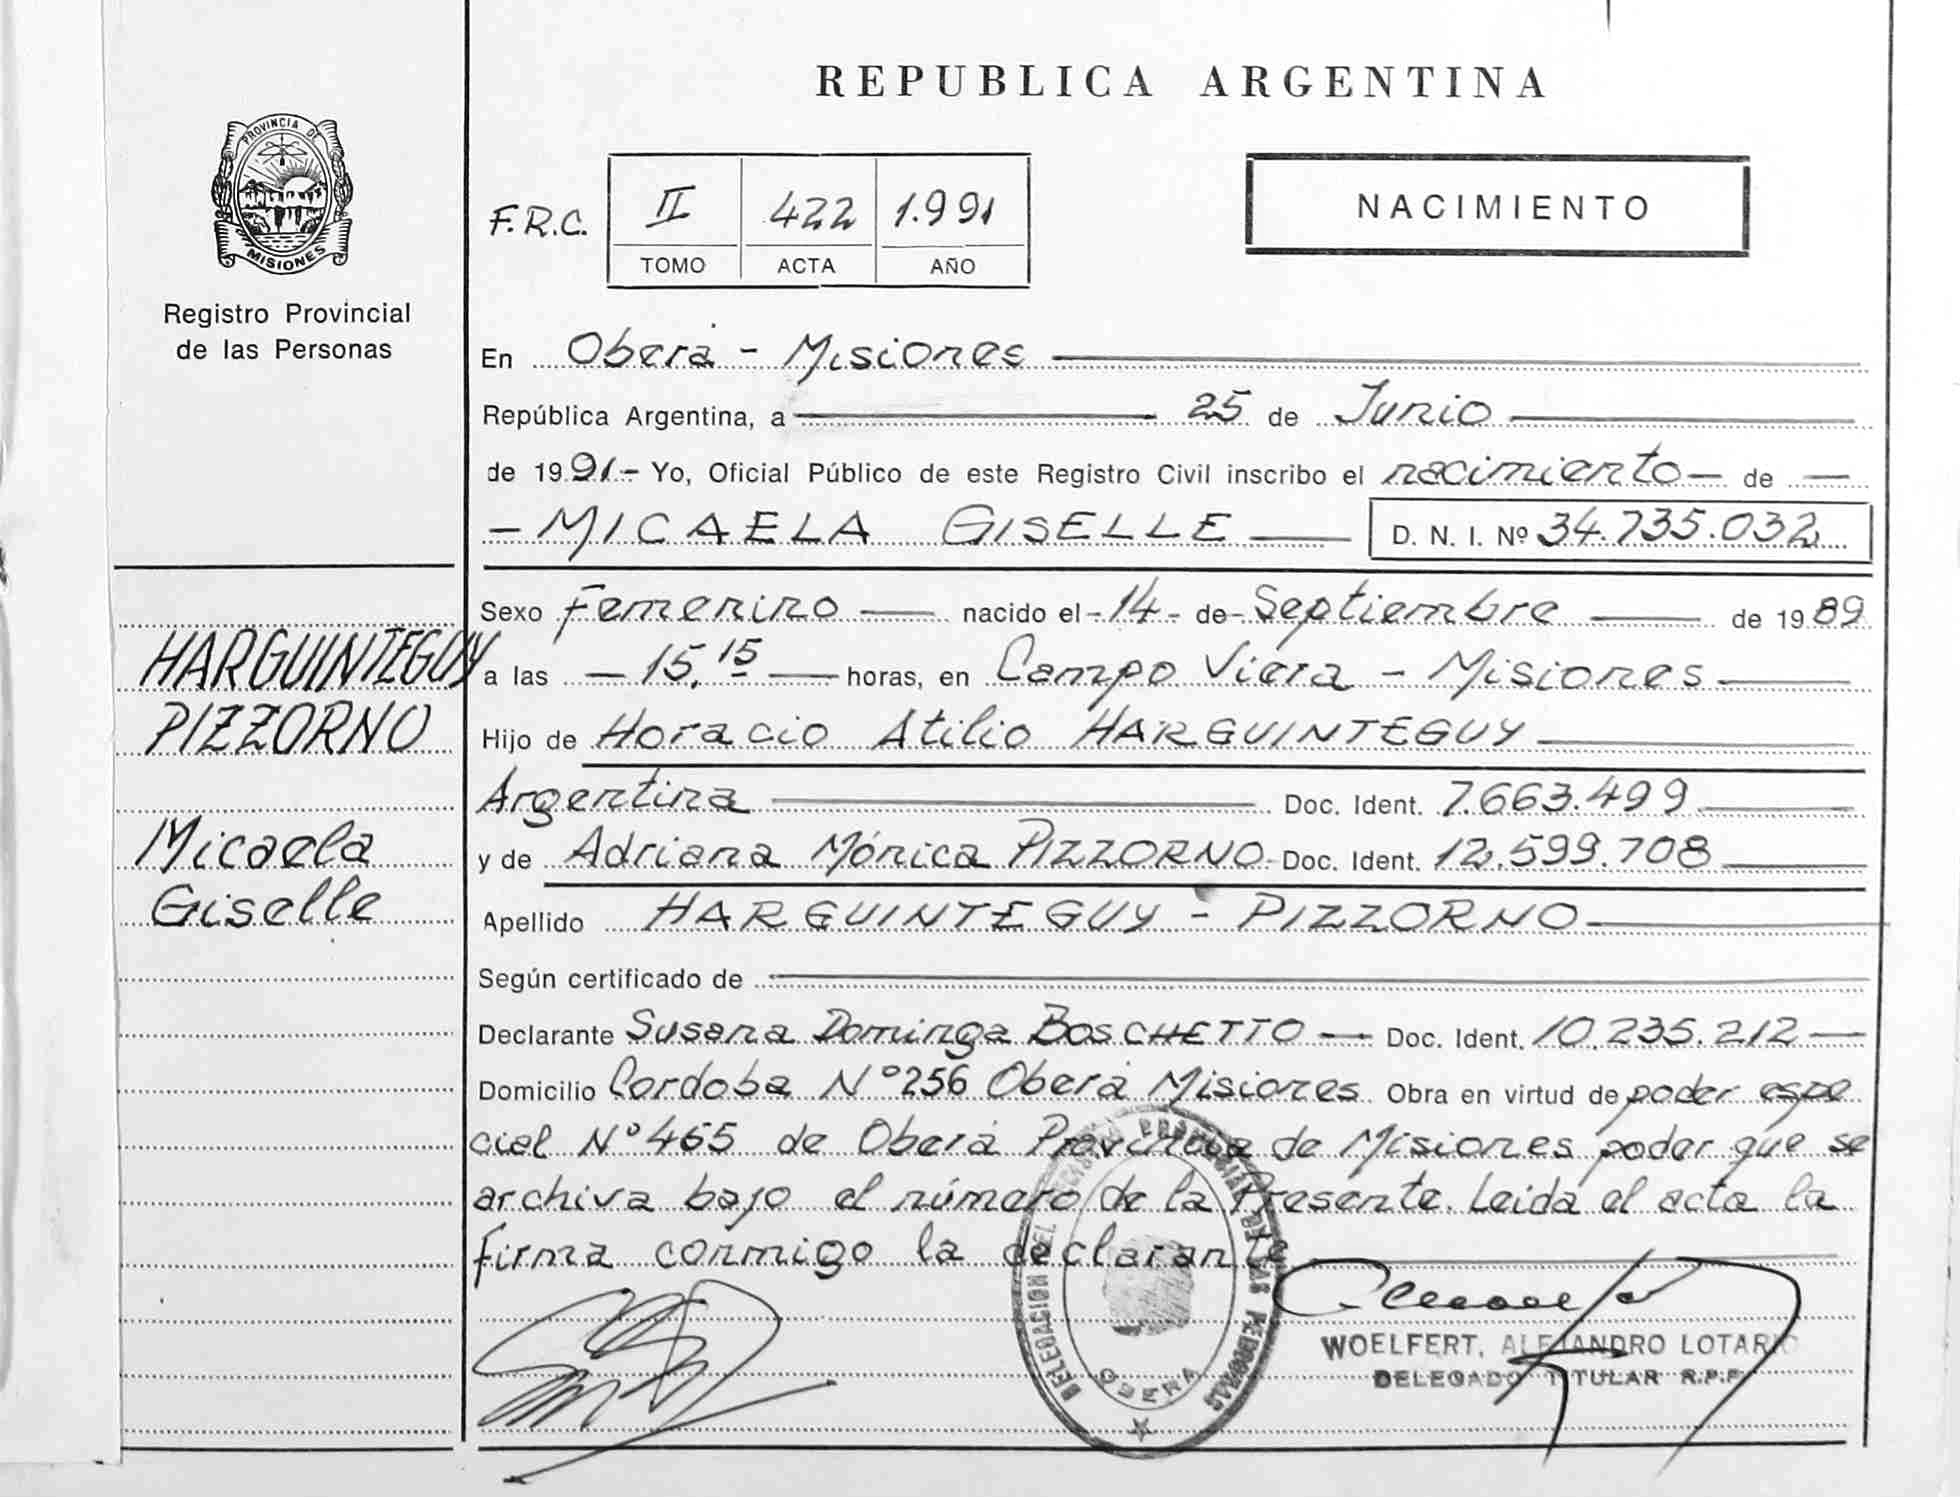 REPUBLICA ARGENTINA
PROVINCIA DE
MISIONES
Registro Provincial
de las Personas
F.R.C.
II 422 1.991
TOMO ACTA AÑO
NACIMIENTO
En Oberá - Misiones
República Argentina, a 25 de Junio
de 1991.- Yo, Oficial Público de este Registro Civil inscribo el nacimiento - de -
- MICAELA GISELLE - D. N. I. Nº 34.735.032
Sexo Femenino - nacido el - 14 - de - Septiembre - de 1989
a las - 15,15 - horas, en Campo Viera - Misiones
Hijo de Horacio Atilio HARGUINTEGUY
Argentina Doc. Ident. 7.663.499
y de Adriana Mónica PIZZORNO - Doc. Ident. 12.599.708
Apellido HARGUINTEGUY - PIZZORNO
Según certificado de
Declarante Susana Dominga BOSCHETTO - Doc. Ident. 10.235.212 -
Domicilio Cordoba Nº 256 Oberá Misiones Obra en virtud de poder espe
cial Nº 465 de Oberá Provincia de Misiones poder que se
archiva bajo el número de la Presente. Leida el acta la
firma conmigo la declarante
HARGUINTEGUY
PIZZORNO
Micaela
Giselle
DELEGACION DEL REGISTRO PROVINCIAL DE LAS PERSONAS
OBERA
WOELFERT, ALEJANDRO LOTARIO
DELEGADO TITULAR R.P.P.